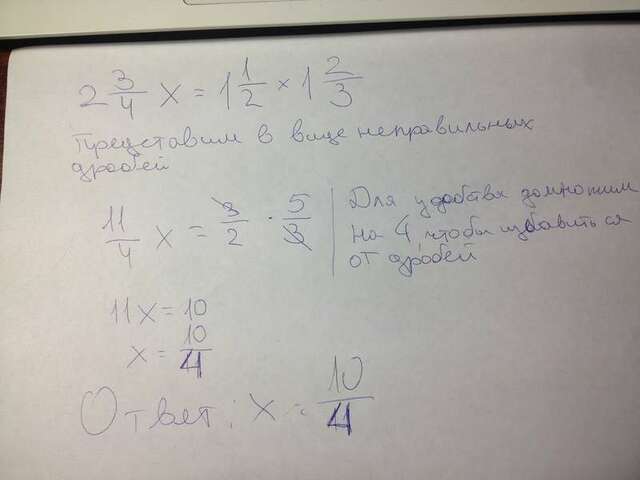 2 3/4 x = 1 1/2 × 1 2/3
Представим в виде неправильных
дробей
11/4 x = 3/2 · 5/3 | Для удобства домножим
на 4, чтобы избавиться
от дробей
11x = 10
x = 10/11
Ответ: x = 10/11